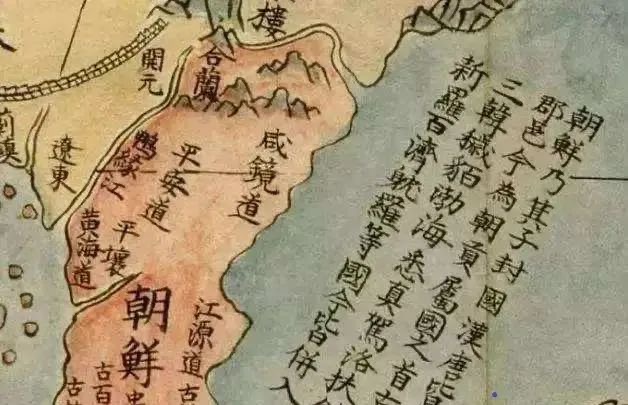 朝鮮乃其子封國漢唐皆
郡邑今為朝貢屬國之首古
三韓穢貊渤海悉真駕洛扶
新羅百濟耽羅等國今皆併入
樓
合蘭
開元
遼東
咸鏡道
平安道
鴨緣江
平壤
黃海道
江源道
朝鮮
古百
古